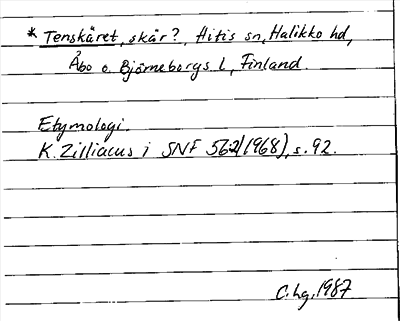 * Tenskäret, skär?, Hitis sn, Halikko hd,
Åbo o. Björneborgs l, Finland.
Etymologi.
K. Zilliacus i SNF 562(1968), s. 92.
C. hg, 1987